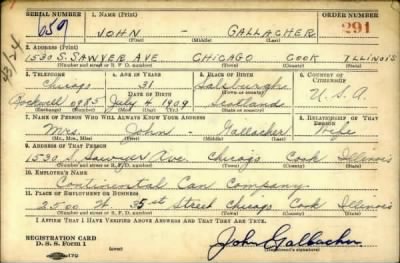 SERIAL NUMBER 1. NAME (Print) ORDER NUMBER
659 JOHN - GALLACHER 291
(First) (Middle) (Last)
2. ADDRESS (Print)
1530 S. SAWYER AVE CHICAGO COOK ILLINOIS
(Number and street or R. F. D. number) (Town) (County) (State)
3. TELEPHONE 4. AGE IN YEARS 5. PLACE OF BIRTH 6. COUNTRY OF CITIZENSHIP
Chicago 31
DATE OF BIRTH
Rockwell 0985 July 4 1909 Scotland U.S.A.
(Exchange) (Number) (Mo.) (Day) (Yr.) (State or country)
7. NAME OF PERSON WHO WILL ALWAYS KNOW YOUR ADDRESS 8. RELATIONSHIP OF THAT PERSON
Mrs. John - Gallacher Wife
(Mr., Mrs., Miss) (First) (Middle) (Last)
9. ADDRESS OF THAT PERSON
1530 S. Sawyer Ave. Chicago Cook Illinois
(Number and street or R. F. D. number) (Town) (County) (State)
10. EMPLOYER'S NAME
Continental Can Company
11. PLACE OF EMPLOYMENT OR BUSINESS
2500 W. 35th Street Chicago Cook Illinois
(Number and street or R. F. D. number) (Town) (County) (State)
I AFFIRM THAT I HAVE VERIFIED ABOVE ANSWERS AND THAT THEY ARE TRUE.
REGISTRATION CARD
D. S. S. Form 1 John Gallacher
(Registrant's signature)